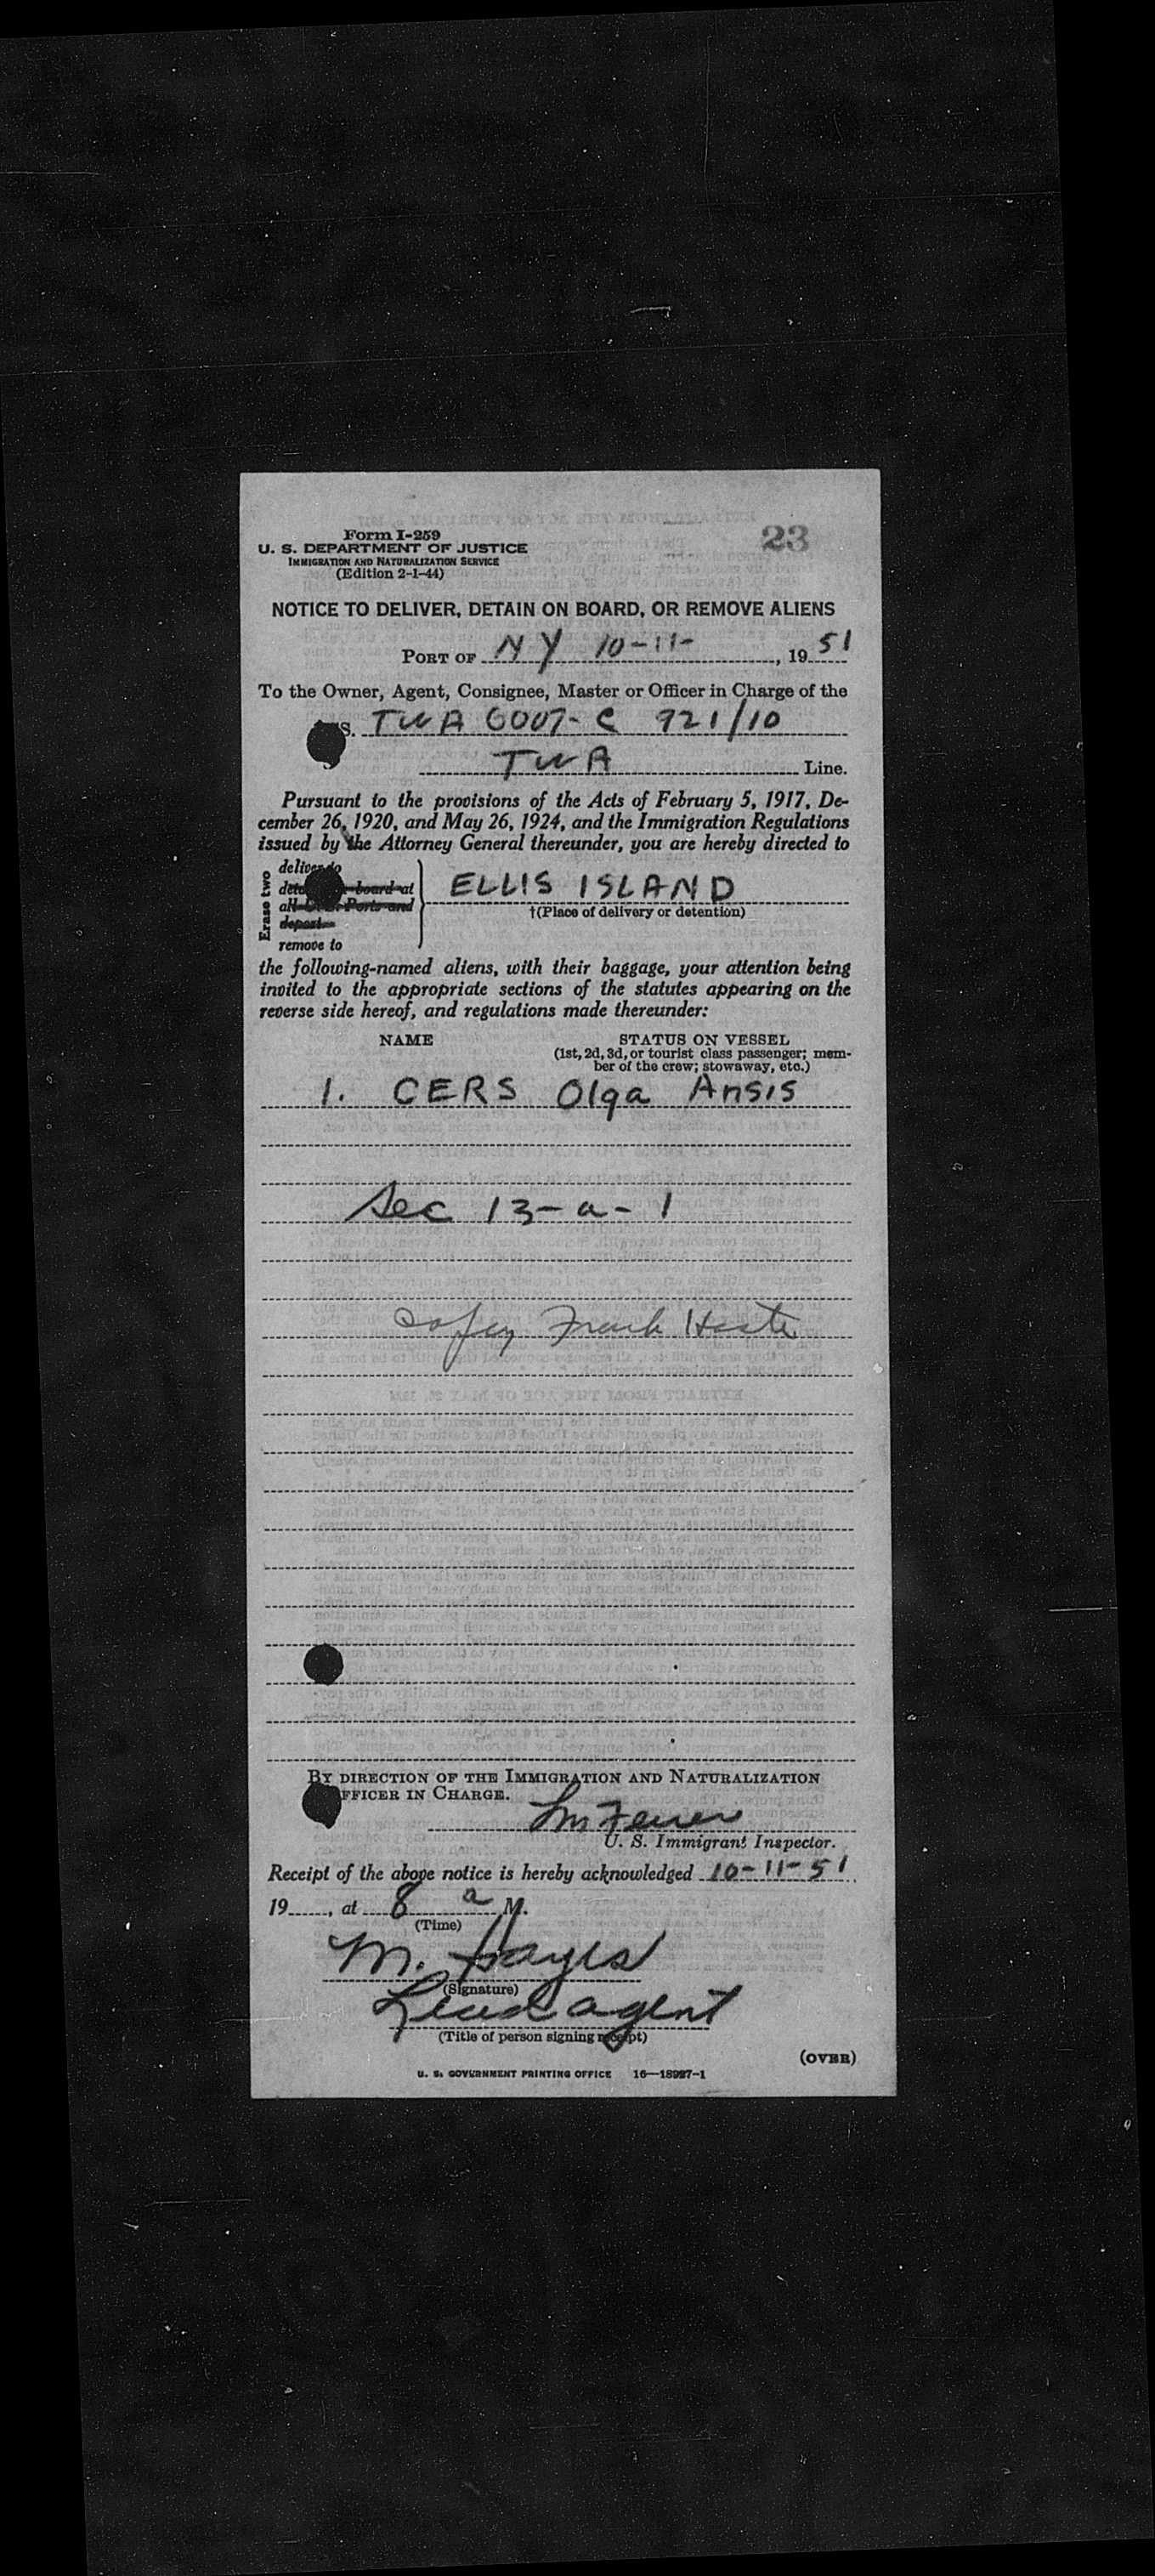 Form I-259
U. S. DEPARTMENT OF JUSTICE
IMMIGRATION AND NATURALIZATION SERVICE
(Edition 2-1-44)
23
NOTICE TO DELIVER, DETAIN ON BOARD, OR REMOVE ALIENS
PORT OF NY 10-11-, 1951
To the Owner, Agent, Consignee, Master or Officer in Charge of the
S. TWA 6007-C 921/10
TWA Line.
Pursuant to the provisions of the Acts of February 5, 1917, De-
cember 26, 1920, and May 26, 1924, and the Immigration Regulations
issued by the Attorney General thereunder, you are hereby directed to
Erase two
deliver to
board at
Ports and
depart
remove to
ELLIS ISLAND
†(Place of delivery or detention)
the following-named aliens, with their baggage, your attention being
invited to the appropriate sections of the statutes appearing on the
reverse side hereof, and regulations made thereunder:
NAME
STATUS ON VESSEL
(1st, 2d, 3d, or tourist class passenger; mem-
ber of the crew; stowaway, etc.)
1. CERS Olga Ansis
Sec 13-a-1
Frank
BY DIRECTION OF THE IMMIGRATION AND NATURALIZATION
OFFICER IN CHARGE.
U. S. Immigrant Inspector.
Receipt of the above notice is hereby acknowledged 10-11-51,
19, at 8 a M.
(Time)
M. Hayes
(Signature)
Lead agent
(Title of person signing receipt)
(OVER)
U. S. GOVERNMENT PRINTING OFFICE 16—18927-1